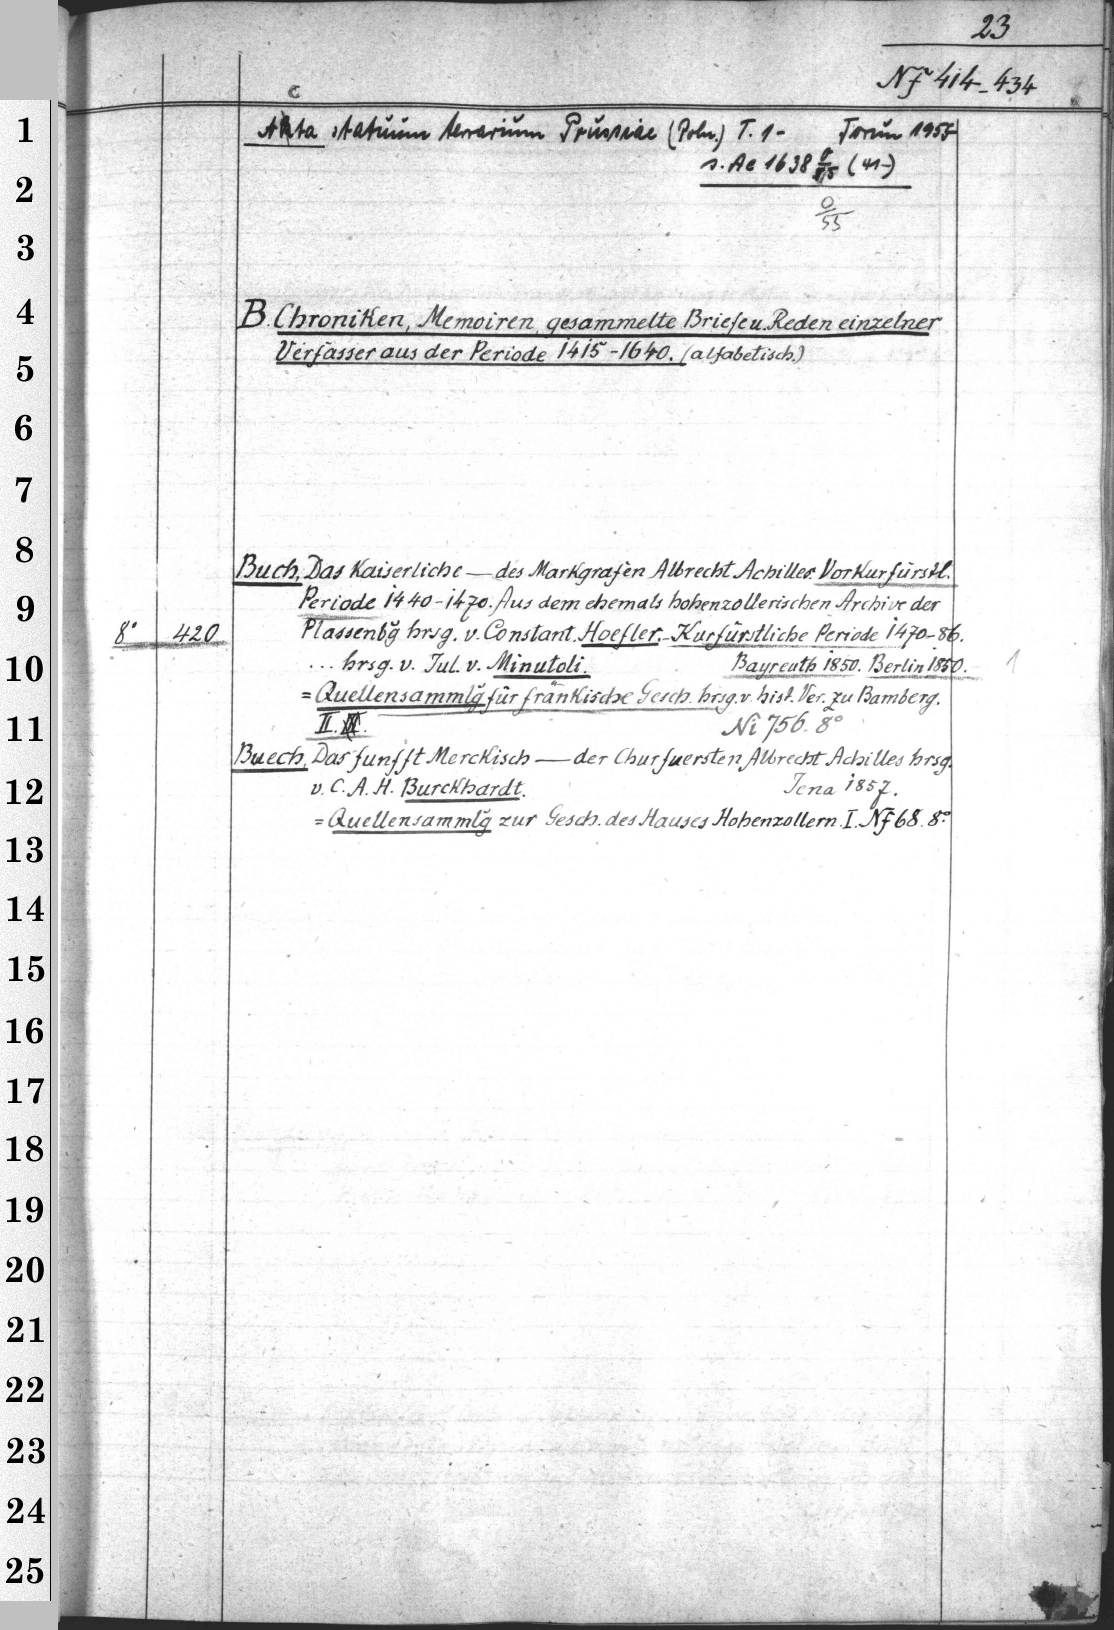 23
Nf 414-434
c
Akta statuum terrarum Prussiae (Poln.) T. 1- Torun 1955
s. Ae 1638 (41-)
0/55
B. Chroniken, Memoiren, gesammelte Briefe u. Reden einzelner
Verfasser aus der Periode 1415-1640. (alfabetisch.)
Buch, Das Kaiserliche — des Markgrafen Albrecht Achilles. Vorkurfürstl.
Periode 1440-1470. Aus dem ehemals hohenzollerischen Archive der
8° 420 Plassenbg hrsg. v. Constant. Hoefler. - Kurfürstliche Periode 1470-86.
... hrsg. v. Jul. v. Minutoli. Bayreuth 1850. Berlin 1850. 1
= Quellensammlg für fränkische Gesch. hrsg. v. hist. Ver. zu Bamberg.
II. Ni 756. 8°
Buech, Das funfft Merckisch — der Churfuersten Albrecht Achilles hrsg.
v. C. A. H. Burckhardt. Jena 1857.
= Quellensammlg zur Gesch. des Hauses Hohenzollern. I. Nf 68. 8°
1
2
3
4
5
6
7
8
9
10
11
12
13
14
15
16
17
18
19
20
21
22
23
24
25